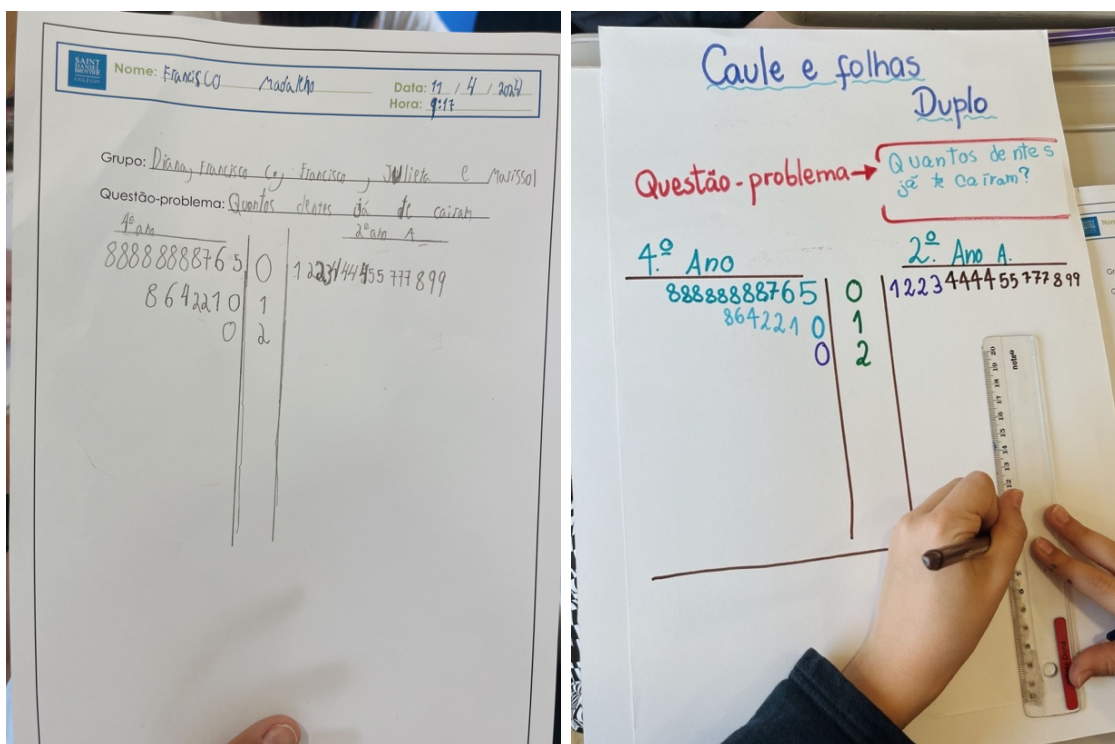 SAINT
DANIEL
BROTTIER
COLÉGIO
Nome: Francisco Madalho
Data: 11 / 4 / 2024
Hora: 9:17
Grupo: Diana, Francisco C, Francisco, Julieta e Marissol
Questão-problema: Quantos dentes já te caíram
4º ano 2º ano A
8888888765 0 12234444557778 99
8642210 1
0 2
Caule e folhas
Duplo
Questão-problema→ Quantos dentes
já te caíram?
4.º Ano 2.º Ano A.
88888888765 0 1223444455777899
8642210 1
0 2